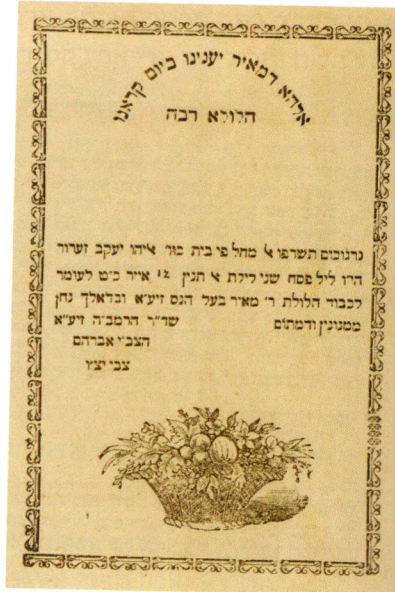 אלהא דמאיר יענינו ביום קראנו
הלולא רבה
נרגוכום תשרפו אל מחל פי בית כוה׳ אליהו יעקב זערור
הי״ו ליל פסח שני לילת אל תנין 14 אייר כ״ט לעומר
לכבוד הלולת ר׳ מאיר בעל הנס זיע״א ובדאלך נחן
ממנונין ודמתום
שד״ר הרמב״ה זיע״א
הצב״י אברהם
צבי יצ״ו